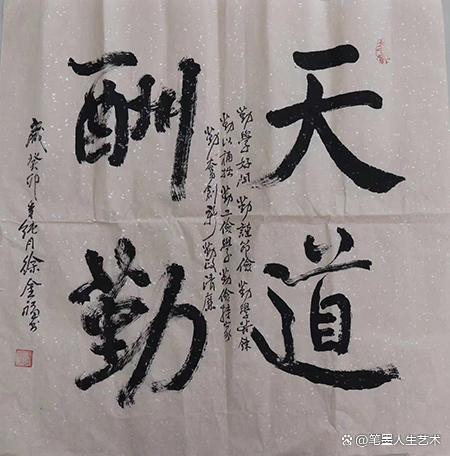 天道
勤學好问 勤謹節儉 勤學苦練
勤以補拙 勤工儉學 勤儉持家
勤奮創新 勤政清廉
酬勤
歲癸卯年 月徐金福书
笔墨人生艺术